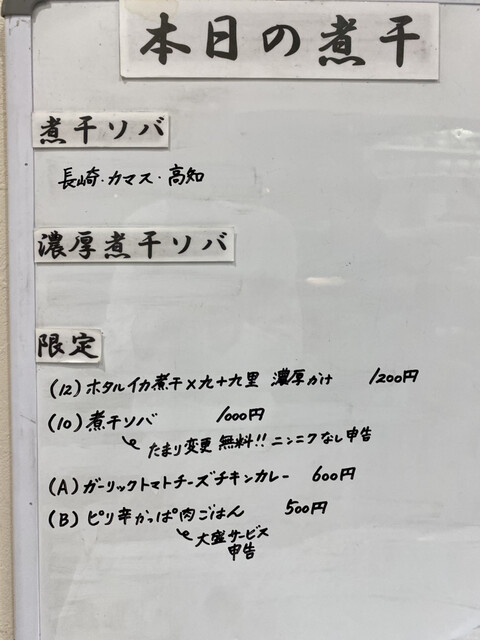 本日の煮干
煮干ソバ
長崎・カマス・高知
濃厚煮干ソバ
限定
(12) ホタルイカ煮干×九十九里 濃厚かけ 1200円
(10) 煮干ソバ 1000円
たまり変更 無料!! ニンニクなし申告
(A) ガーリックトマトチーズチキンカレー 600円
(B) ピリ辛かっぱ肉ごはん 500円
大盛サービス
申告